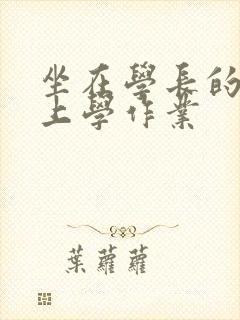 坐在學長的
上學作業
葉蘿蘿